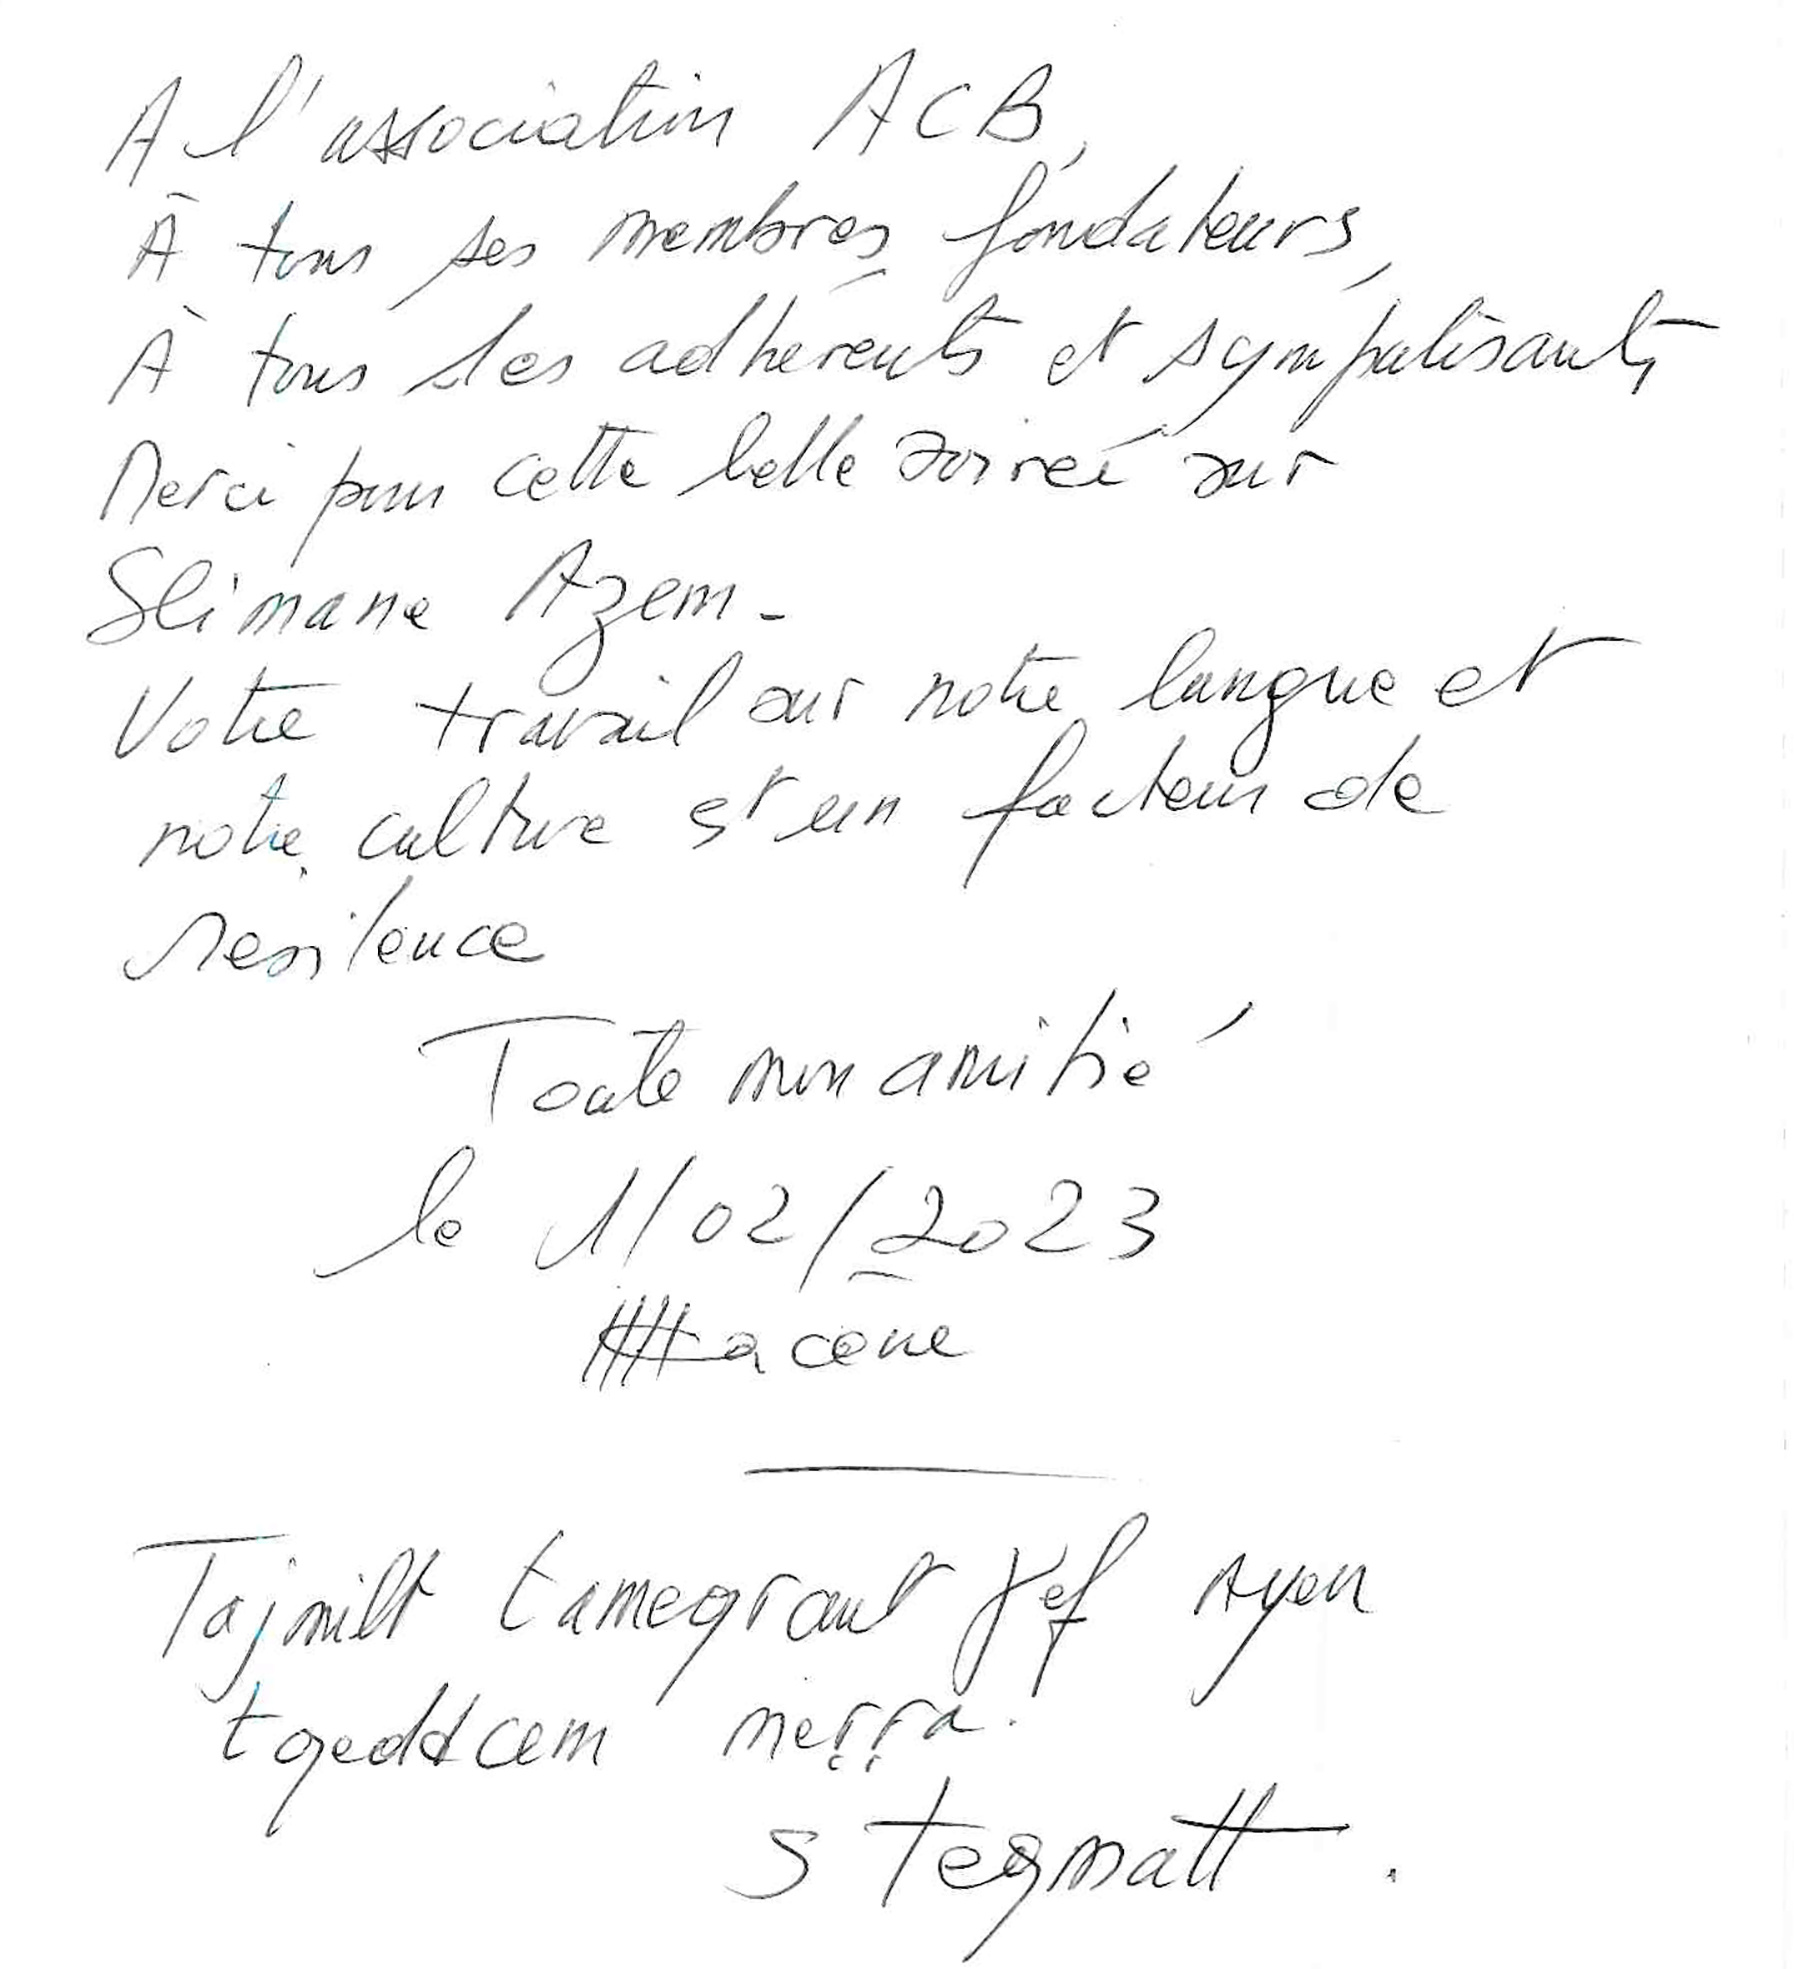 A l'association ACB,
À tous ses membres fondateurs,
À tous les adhérents et sympatisants,
Merci pour cette belle soirée sur
Slimane Azem -
Votre travail sur notre langue et
notre culture est un facteur de
résilence
Toute mon amitié
le 1/02/2023
Hacène
Tajmilt tameqrant ɣef ayen
tqeddcem meṛṛa.
S tegmatt.